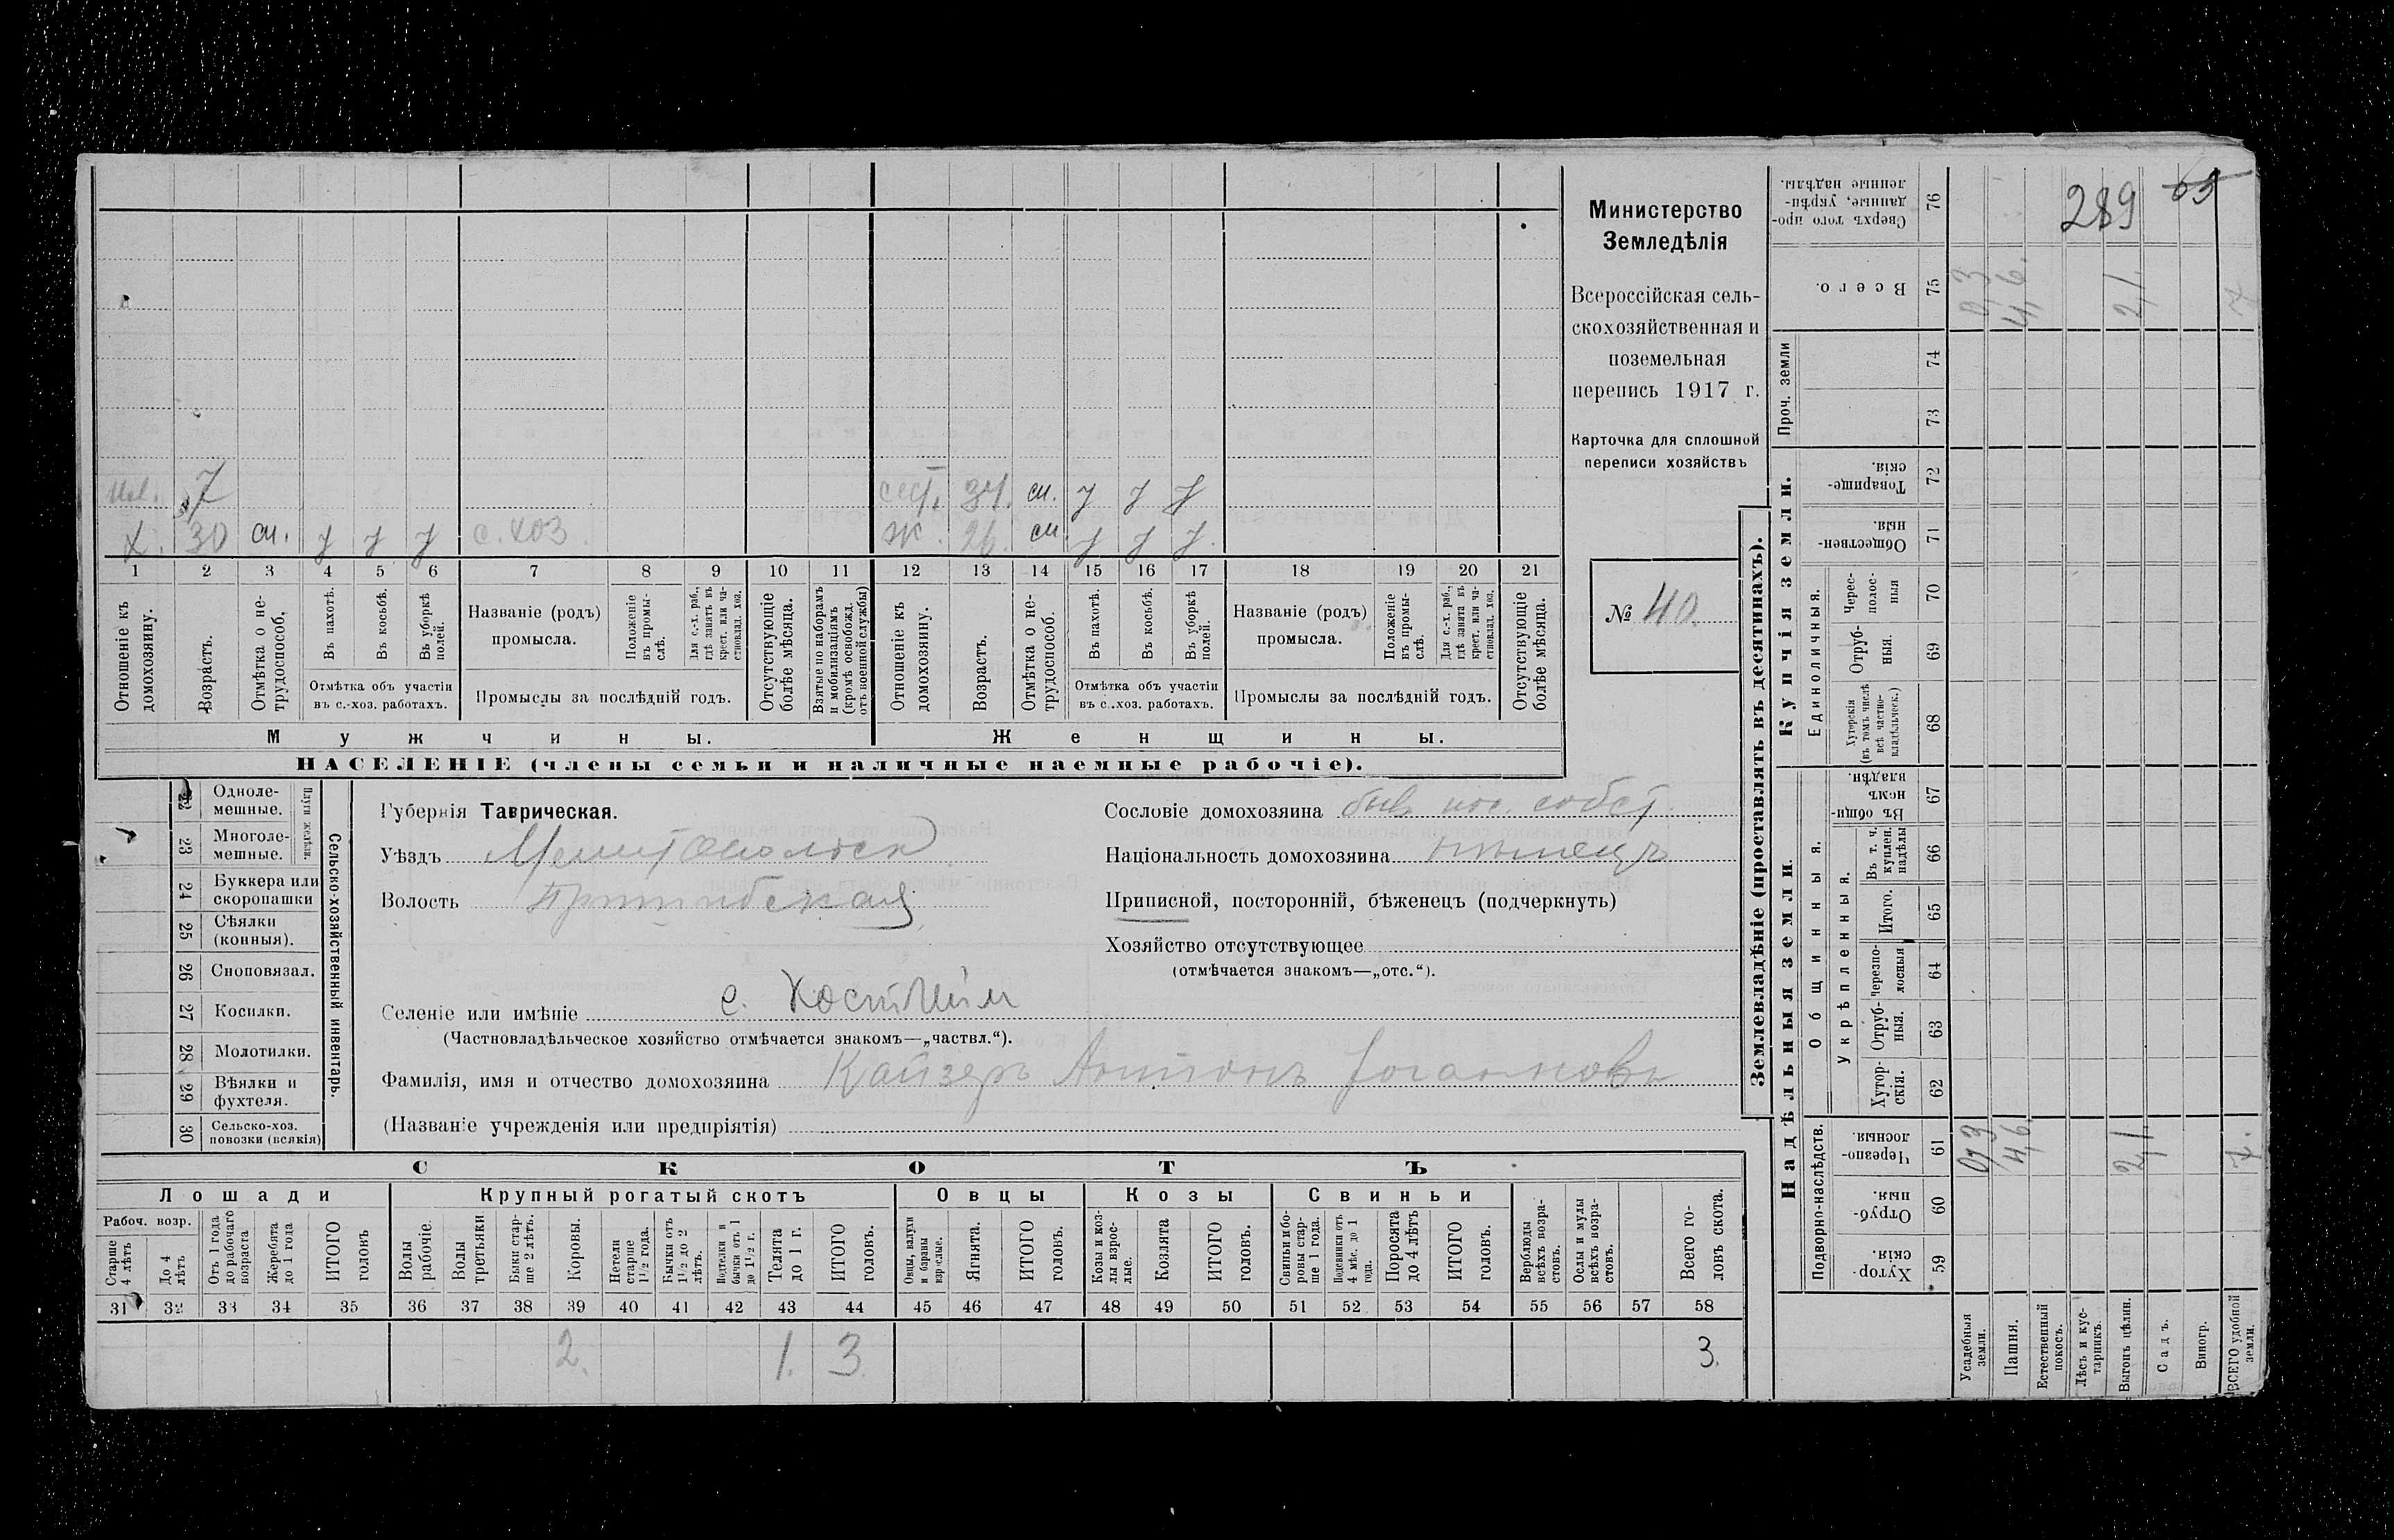 289 63
Министерство
Земледѣлія
Всероссійская сель-
скохозяйственная и
поземельная
перепись 1917 г.
Карточка для сплошной
переписи хозяйствъ
№ 40.
7
сест. 34. сп. J J J
Х. 30 сп. J J J с. хоз.
ж. 26. сп. J J J.
1 2 3 4 5 6 7 8 9 10 11 12 13 14 15 16 17 18 19 20 21
Отношеніе къ домохозяину.
Возрастъ.
Отмѣтка о не-трудоспособ.
Въ пахотѣ.
Въ косьбѣ.
Въ уборкѣ полей.
Отмѣтка объ участіи въ с.-хоз. работахъ.
Названіе (родъ) промысла.
Положеніе въ промы-слѣ.
Для с.-х. раб., гдѣ занятъ въ крест. или ча-стновлад. хоз.
Промыслы за послѣдній годъ.
Отсутствующіе болѣе мѣсяца.
Взятые по наборамъ и мобилизаціямъ (кромѣ освобожд. отъ военной службы)
Отношеніе къ домохозяину.
Возрастъ.
Отмѣтка о не-трудоспособ.
Въ пахотѣ.
Въ косьбѣ.
Въ уборкѣ полей.
Отмѣтка объ участіи въ с.-хоз. работахъ.
Названіе (родъ) промысла.
Положеніе въ промы-слѣ.
Для с.-х. раб., гдѣ занята въ крест. или ча-стновлад. хоз.
Промыслы за послѣдній годъ.
Отсутствующіе болѣе мѣсяца.
Мужчины.
Женщины.
НАСЕЛЕНІЕ (члены семьи и наличные наемные рабочіе).
Сельско-хозяйственный инвентарь.
Плуги желѣзн.
22 Одноле-мешные.
23 Многоле-мешные.
24 Буккера или скоропашки
25 Сѣялки (конныя).
26 Сноповязал.
27 Косилки.
28 Молотилки.
29 Вѣялки и фухтеля.
30 Сельско-хоз. повозки (всякія)
Губернія Таврическая.
Уѣздъ Мелитопольск
Волость Пришибская
Сословіе домохозяина быв. пос. собст.
Національность домохозяина нѣмецъ
Приписной, посторонній, бѣженецъ (подчеркнуть)
Хозяйство отсутствующее
(отмѣчается знакомъ—„отс.“).
Селеніе или имѣніе с. Костгейм
(Частновладѣльческое хозяйство отмѣчается знакомъ—„частвл.“).
Фамилія, имя и отчество домохозяина Кайзеръ Антонъ Іогановъ
(Названіе учрежденія или предпріятія)
СКОТЪ
Лошади
Крупный рогатый скотъ
Овцы
Козы
Свиньи
Рабоч. возр.
Старше 4 лѣтъ
До 4 лѣтъ
Отъ 1 года до рабочаго возраста
Жеребята до 1 года
ИТОГО головъ
Волы рабочіе.
Волы третьяки
Быки стар-ше 2 лѣтъ.
Коровы.
Нетели старше 1 1/2 года.
Бычки отъ 1 1/2 до 2 лѣтъ.
Подтелки и бычки отъ 1 до 1 1/2 г.
Телята до 1 г.
ИТОГО головъ.
Овцы, валухи и бараны взрослые.
Ягнята.
ИТОГО головъ.
Козы и коз-лы взрос-лые.
Козлята
ИТОГО головъ.
Свиньи и бо-ровы стар-ше 1 года.
Подсвинки отъ 4 мѣс. до 1 года.
Поросята до 4 лѣтъ
ИТОГО головъ.
Верблюды всѣхъ возра-стовъ.
Ослы и мулы всѣхъ возра-стовъ.
Всего го-ловъ скота.
31 32 33 34 35 36 37 38 39 40 41 42 43 44 45 46 47 48 49 50 51 52 53 54 55 56 57 58
2. 1. 3 3.
Землевладѣніе (проставлять въ десятинахъ).
Купчія земли.
Надѣльныя земли.
76 Сверхъ того про-данные, укрѣп-ленные надѣлы.
75 Всего. 0,3 4,6. 2,1. 7.
Проч. земли
74
73
72 Товарище-скія.
71 Обществен-ныя.
Единоличныя.
70 Черес-полос-ныя
69 Отруб-ныя.
68 Хуторскія (въ томъ числѣ всѣ частно-владѣльческ.)
Общинныя.
67 Въ общин-номъ владѣн.
Укрѣпленныя.
66 Въ т. ч. куплен. надѣлы
65 Итого.
64 Черезпо-лосныя
63 Отруб-ныя.
62 Хутор-скія.
Подворно-наслѣдств.
61 Черезпо-лосныя. 0,3 4,6. 2,1. 7.
60 Отруб-ныя.
59 Хутор-скія.
Усадебныя земли.
Пашня.
Естественный покосъ.
Лѣсъ и кус-тарникъ.
Выгонъ цѣлин.
Садъ.
Виногр.
ВСЕГО удобной земли.